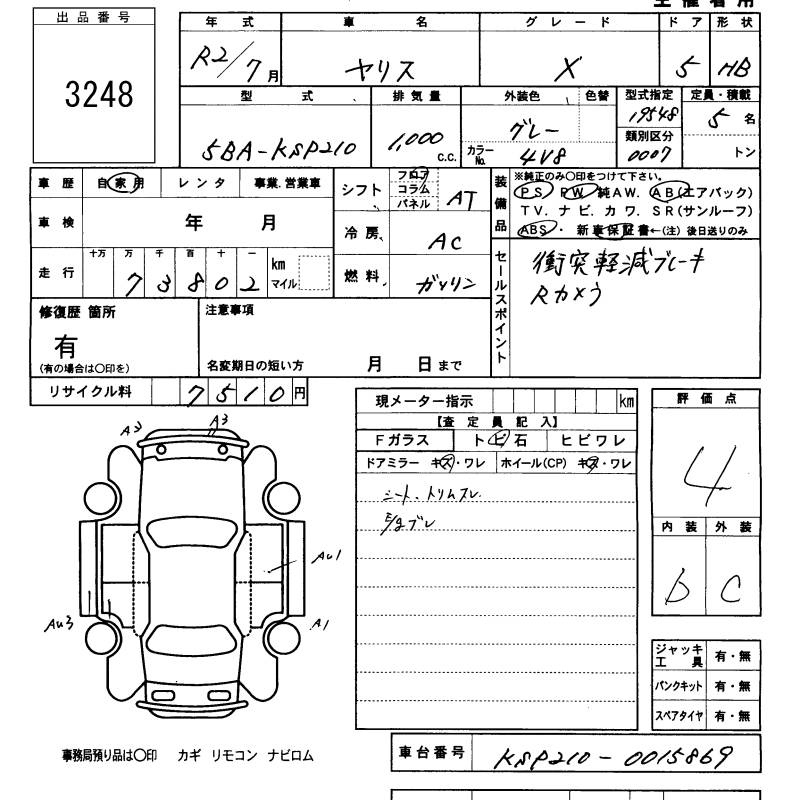 主催者用
出品番号
3248
年式 車名 グレード ドア 形状
R2/7月 ヤリス X 5 HB
型式 排気量 外装色 色替 型式指定 定員・積載
5BA-KSP210 1,000 c.c. グレー 19548 5名
カラーNo. 4V8 類別区分 0007 トン
車歴 自家用 レンタ 事業.営業車
車検 年 月
走行 十万 万 千 百 十 一
73802 km マイル
シフト フロア コラム パネル AT
冷房 AC
燃料 ガソリン
装備品 ※純正のみ〇印をつけて下さい。
PS PW 純AW. AB(エアバック)
TV. ナビ. カワ. SR(サンルーフ)
ABS・ 新車保証書←(注) 後日送りのみ
セールスポイント
衝突軽減ブレーキ
Rカメラ
修復歴 箇所
有
(有の場合は〇印を)
注意事項
名変期日の短い方 月 日まで
リサイクル料 7510円
現メーター指示 km
【査定員記入】
Fガラス トビ石 ヒビワレ
ドアミラー キズ・ワレ ホイール(CP) キズ・ワレ
シート、トリムスレ
評価点
4
内装 外装
b C
A3 A3
Au1
Au3 A1
ジャッキ工具 有・無
パンクキット 有・無
スペアタイヤ 有・無
事務局預り品は〇印 カギ リモコン ナビロム
車台番号 KSP210-0015869